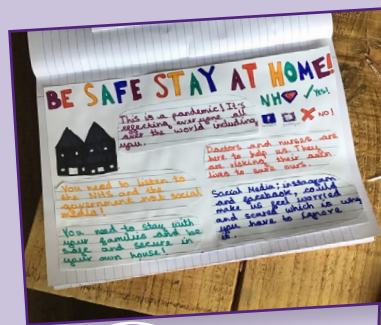 BE SAFE STAY AT HOME!
This is a pandemic! It's
effecting everyone all
over the world including
you.
NH ✓ Yes!
f ✗ NO!
Doctors and nurses are
here to help us. They
are risking their own
lives to save ours.
You need to listen to
the NHS and the
government not social
media!
Social Media; instagram
and facebook, could
make us feel worried
and scared which is why
you have to ignore
it.
You need to stay with
your families and be
safe and secure in
your own house!